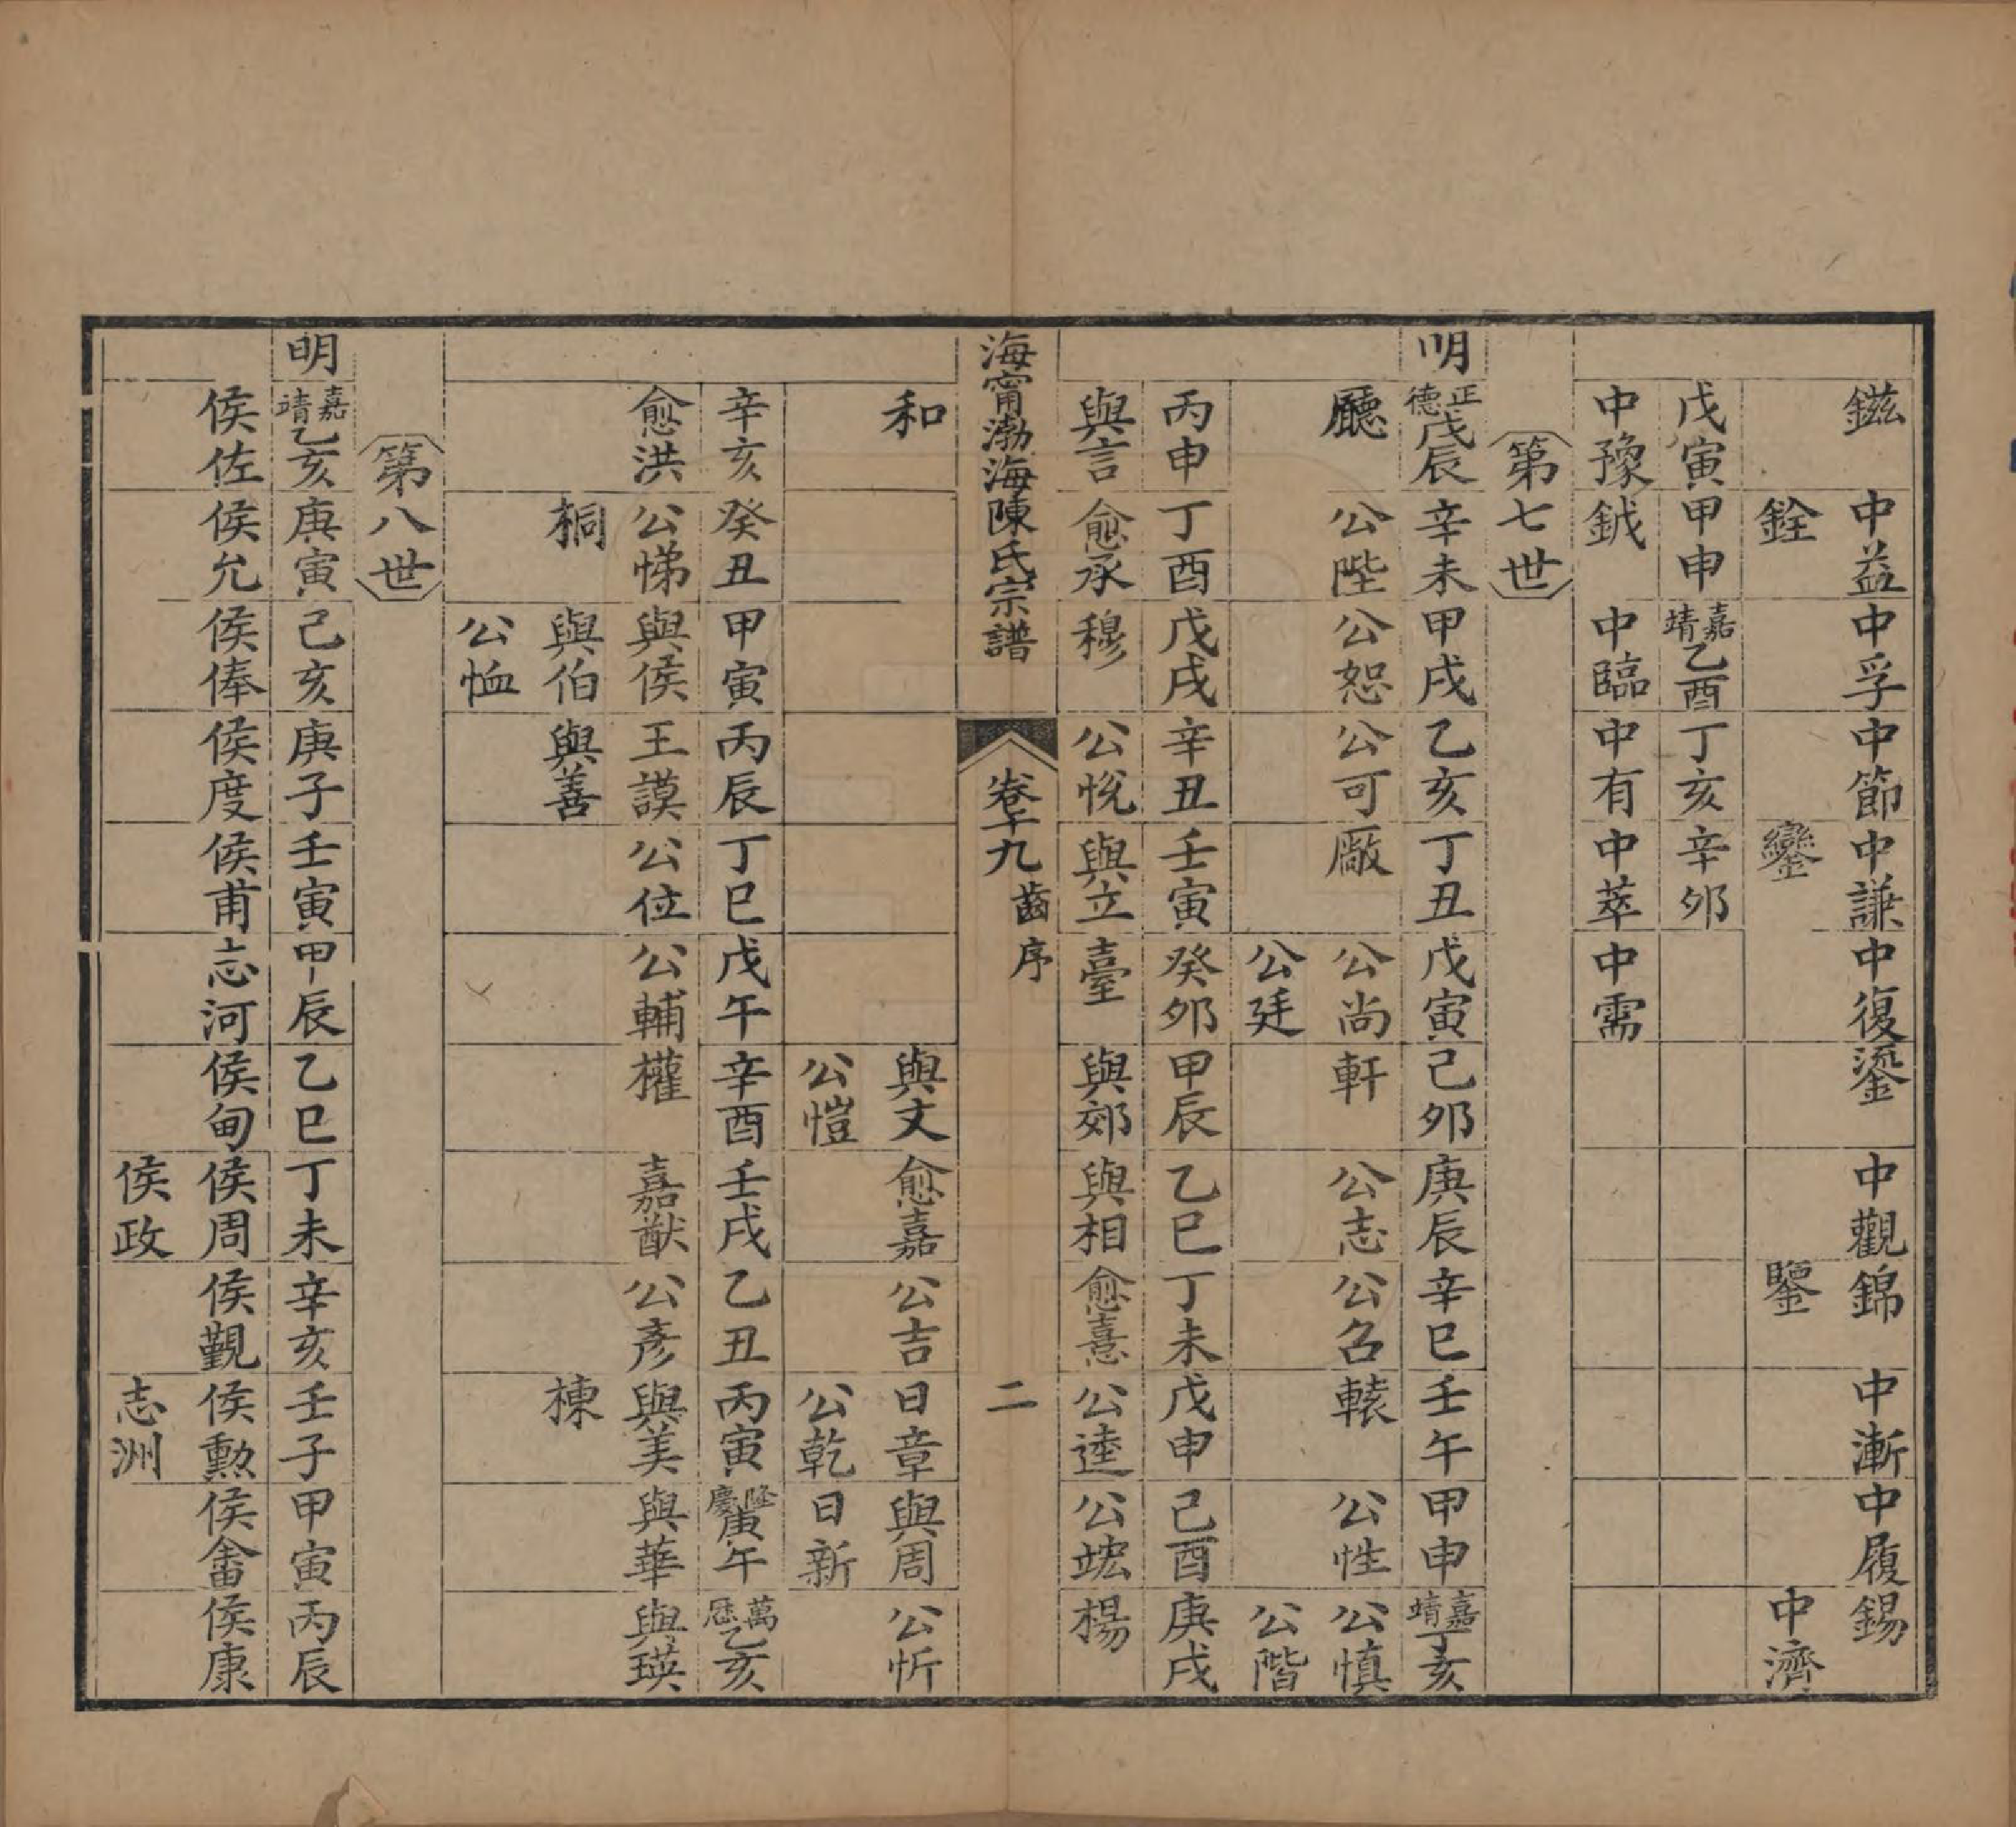 鎡 中益 中孚 中節 中謙 中復 鎏 中觀 錦 中漸 中履 錫
銓 鑾 鑒 中濟
戊寅 甲申 嘉靖乙酉 丁亥 辛卯
中豫 鉞 中臨 中有 中萃 中需
第七世
明 正德戊辰 辛未 甲戌 乙亥 丁丑 戊寅 己卯 庚辰 辛巳 壬午 甲申 嘉靖丁亥
廳 公陛 公恕 公可 廠 公尚 軒 公志 公召 轅 公性 公慎
公廷 公階
丙申 丁酉 戊戌 辛丑 壬寅 癸卯 甲辰 乙巳 丁未 戊申 己酉 庚戌
與言 愈承 穆 公悅 與立 臺 與郊 與相 愈憙 公逵 公竑 楊
海甯渤海陳氏宗譜 卷十九 齒序 二
和 與文 愈嘉 公吉 日章 與周 公忻
公愷 公乾 日新
辛亥 癸丑 甲寅 丙辰 丁巳 戊午 辛酉 壬戌 乙丑 丙寅 隆慶庚午 萬歷乙亥
愈洪 公悌 與侯 王謨 公位 公輔 權 嘉猷 公彥 與美 與華 與瑛
桐 與伯 與善 棟
公恤
第八世
明 嘉靖乙亥 庚寅 己亥 庚子 壬寅 甲辰 乙巳 丁未 辛亥 壬子 甲寅 丙辰
侯佐 侯允 侯俸 侯度 侯甫 志河 侯甸 侯周 侯覲 侯勳 侯畬 侯康
侯政 志洲